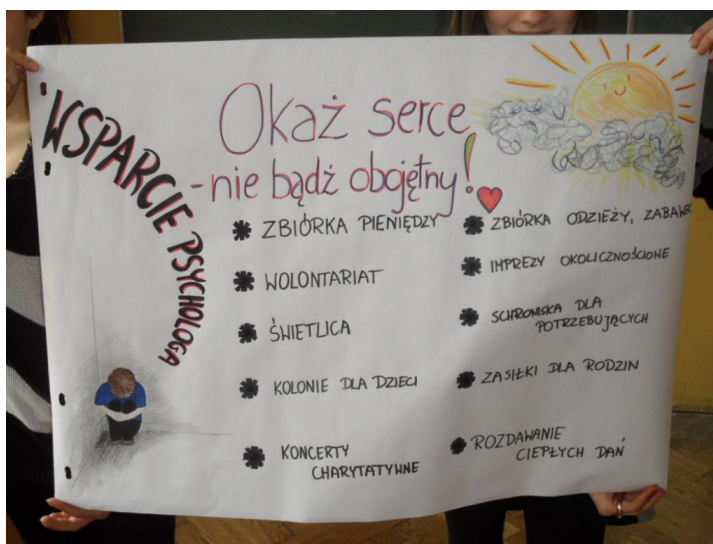 WSPARCIE PSYCHOLOGA
Okaż serce
- nie bądź obojętny!
ZBIÓRKA PIENIĘDZY
WOLONTARIAT
ŚWIETLICA
KOLONIE DLA DZIECI
KONCERTY
CHARYTATYWNE
ZBIÓRKA ODZIEŻY, ZABAWEK
IMPREZY OKOLICZNOŚCIOWE
SCHROMSKA DLA
POTRZEBUJĄCYCH
ZASIŁKI DLA RODZIN
ROZDAWANIE
CIEPŁYCH DAŃ